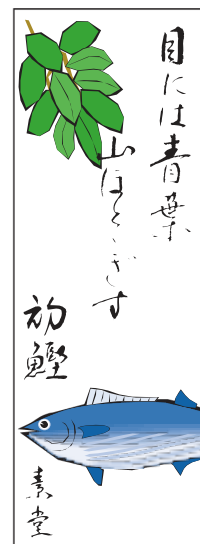 目には青葉
山ほとゝぎす
初鰹
素堂